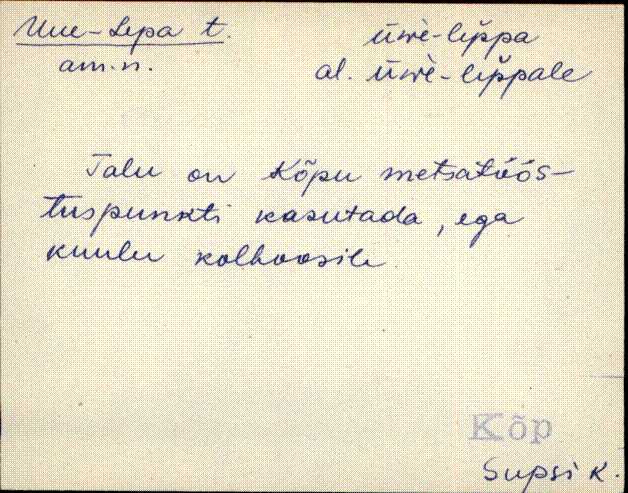 Uue-Lepa t. üwè-lĕppa
am.n. al. üwè-lĕppale
Talu on Kõpu metsatöös-
tuspunkti kasutada, ega
kuulu kolhoosile.
Kõp
Supsi k.